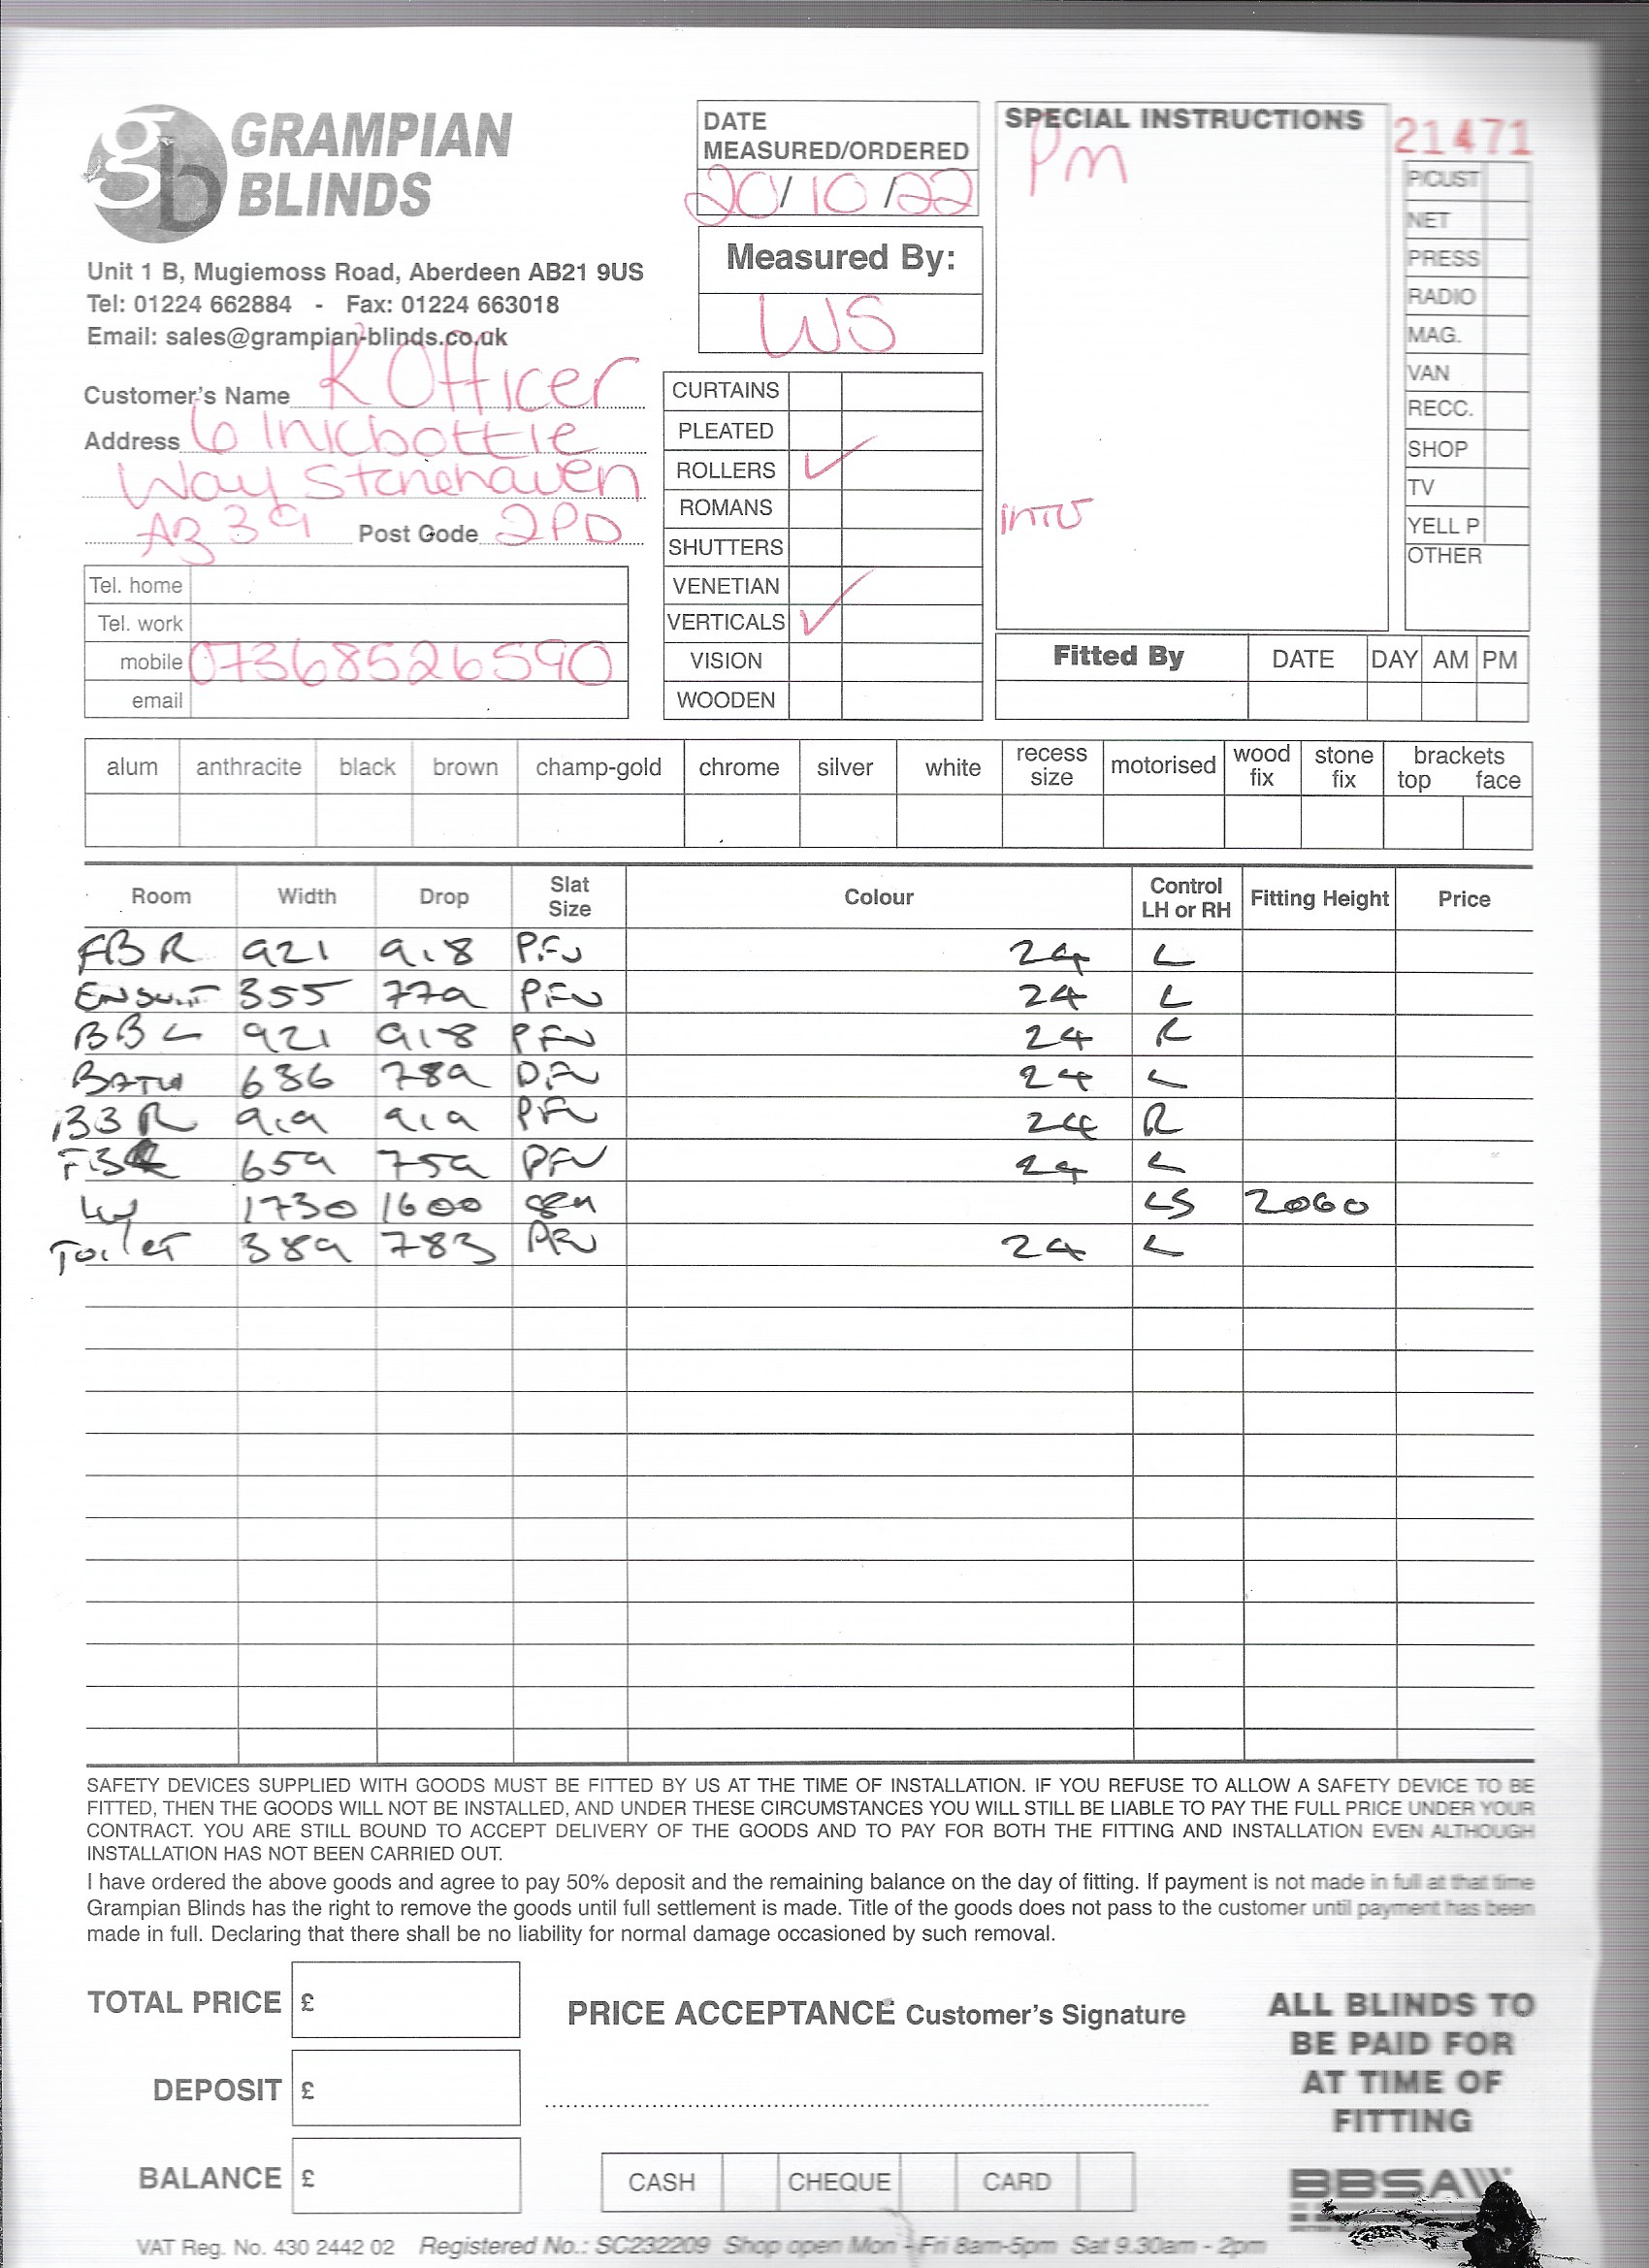 GRAMPIAN
BLINDS
Unit 1 B, Mugiemoss Road, Aberdeen AB21 9US
Tel: 01224 662884 - Fax: 01224 663018
Email: sales@grampian-blinds.co.uk
DATE
MEASURED/ORDERED
20/10/22
Measured By:
WS
SPECIAL INSTRUCTIONS
Pm
into
21471
P/CUST
NET
PRESS
RADIO
MAG.
VAN
RECC.
SHOP
TV
YELL P
OTHER
Customer's Name K Officer
Address 6 Inkbottle
Way Stonehaven
AB39 Post Code 2PD
Tel. home
Tel. work
mobile 07368526590
email
CURTAINS
PLEATED
ROLLERS ✓
ROMANS
SHUTTERS
VENETIAN
VERTICALS ✓
VISION
WOODEN
Fitted By DATE DAY AM PM
alum anthracite black brown champ-gold chrome silver white recess size motorised wood fix stone fix brackets top face
Room Width Drop Slat Size Colour Control LH or RH Fitting Height Price
FBR 921 918 PFU 24 L
ENSUIT 355 779 PFU 24 L
BBL 921 918 PFU 24 R
BATH 686 789 PFU 24 L
BBR 919 919 PFU 24 R
659 759 PFU 24 L
1730 1600 LS 2060
Toilet 389 783 24 L
SAFETY DEVICES SUPPLIED WITH GOODS MUST BE FITTED BY US AT THE TIME OF INSTALLATION. IF YOU REFUSE TO ALLOW A SAFETY DEVICE TO BE
FITTED, THEN THE GOODS WILL NOT BE INSTALLED, AND UNDER THESE CIRCUMSTANCES YOU WILL STILL BE LIABLE TO PAY THE FULL PRICE UNDER YOUR
CONTRACT. YOU ARE STILL BOUND TO ACCEPT DELIVERY OF THE GOODS AND TO PAY FOR BOTH THE FITTING AND INSTALLATION EVEN ALTHOUGH
INSTALLATION HAS NOT BEEN CARRIED OUT.
I have ordered the above goods and agree to pay 50% deposit and the remaining balance on the day of fitting. If payment is not made in full at that time
Grampian Blinds has the right to remove the goods until full settlement is made. Title of the goods does not pass to the customer until payment has been
made in full. Declaring that there shall be no liability for normal damage occasioned by such removal.
TOTAL PRICE £
DEPOSIT £
BALANCE £
PRICE ACCEPTANCE Customer's Signature
CASH CHEQUE CARD
ALL BLINDS TO
BE PAID FOR
AT TIME OF
FITTING
BBSA
VAT Reg. No. 430 2442 02 Registered No.: SC232209 Shop open Mon - Fri 8am-5pm Sat 9.30am - 2pm